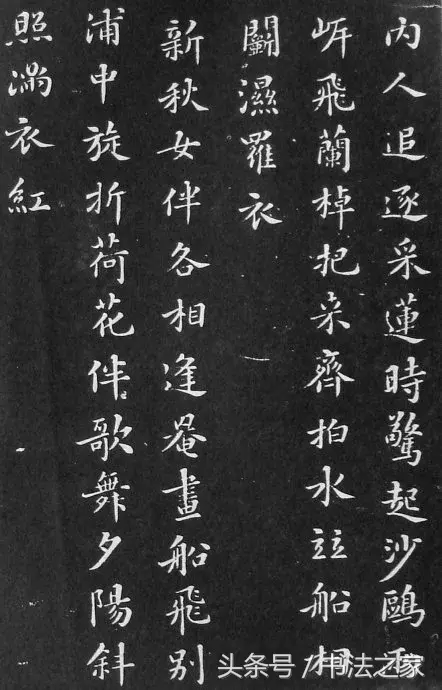 内人追逐采蓮時驚起沙鷗兩
岍飛蘭棹把来齊拍水竝船相
鬭濕羅衣
新秋女伴各相逢罨畫船飛别
浦中旋折荷花伴歌舞夕陽斜
照滿衣紅
头条号 / 书法之家